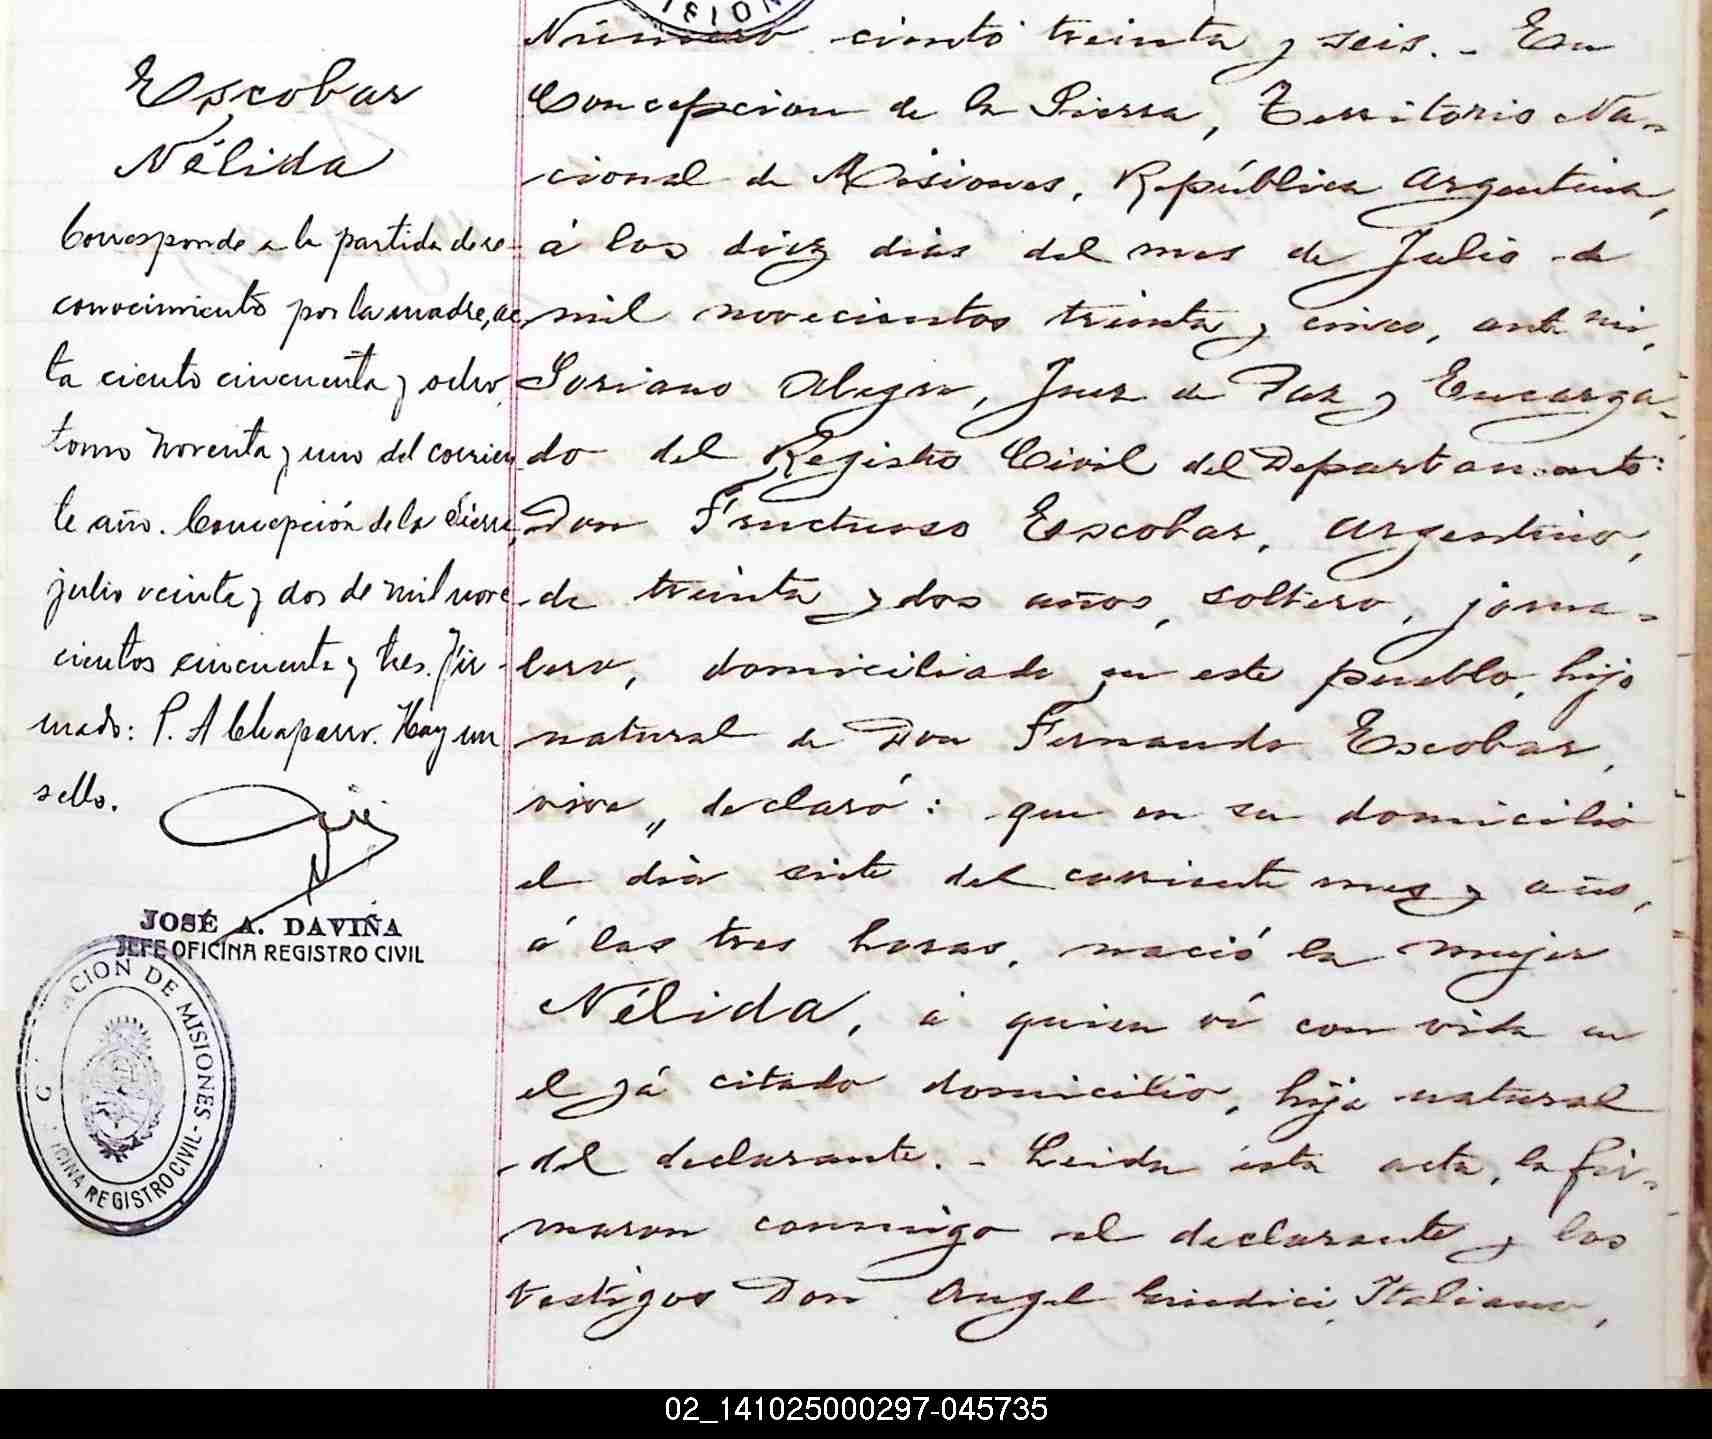 Escobar
Nélida
Corresponde a la partida de re-
conocimiento por la madre, ac
ta ciento cincuenta y ocho,
tomo noventa y uno del corrien
te año. Concepción de la Sierra,
julio veinte y dos de mil nove
cientos cincuenta y tres. Fir-
mado: P. A Chaparro. Hay un
sello.
JOSÉ A. DAVIÑA
JEFE OFICINA REGISTRO CIVIL
G ACION DE MISIONES - ICINA REGISTRO CIVIL -
ISION
Número ciento treinta y seis. - En
Concepcion de la Sierra, Territorio Na-
cional de Misiones, República Argentina,
á los diez dias del mes de Julio de
mil novecientos treinta y cinco, ante mi,
Soriano Alegre, Juez de Paz y Encarga-
do del Registro Civil del Departamento:
Don Fructuoso Escobar, argentino,
de treinta y dos años, soltero, jorna-
lero, domiciliado en este pueblo, hijo
natural de Don Fernando Escobar,
vive„ declaró: que en su domicilio
el dia siete del corriente mes y año,
á las tres horas, nació la mujer
Nélida, á quien ví con vida en
el yá citado domicilio, hija natural
del declarante. - Leida esta acta, la fir-
maron conmigo el declarante y los
testigos Don Angel Italiano,
02_141025000297-045735